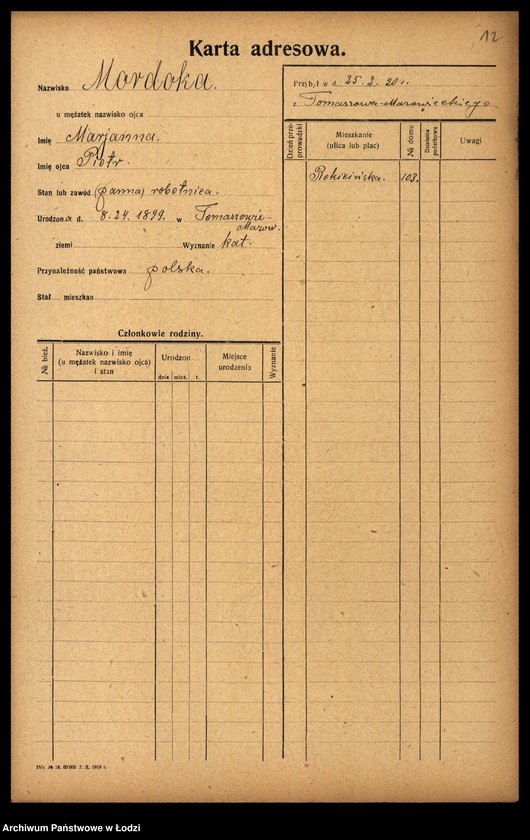 12
Karta adresowa.
Nazwisko Mordoka.
u mężatek nazwisko ojca
Imię Marjanna.
Imię ojca Piotr.
Stan lub zawód (panna) robotnica.
Urodzona d. 8.24.1899. w Tomaszowie-
Mazow.
ziemi Wyznanie kat.
Przynależność państwowa polska.
Stał. mieszkan
Przybył w d. 25.2.20 r.
z Tomaszowa-Mazowieckiego
Dzień przeprowadzki
Mieszkanie
(ulica lub plac)
№ domu
Dzielnica podatkowa
Uwagi
Rokicińska. 103.
Członkowie rodziny.
№ bież.
Nazwisko i imię
(u mężatek nazwisko ojca)
i stan
Urodzon
dnia mies. r.
Miejsce
urodzenia
Wyznanie
IVc. № 18. 60 000 7. X. 1919 r.
Archiwum Państwowe w Łodzi